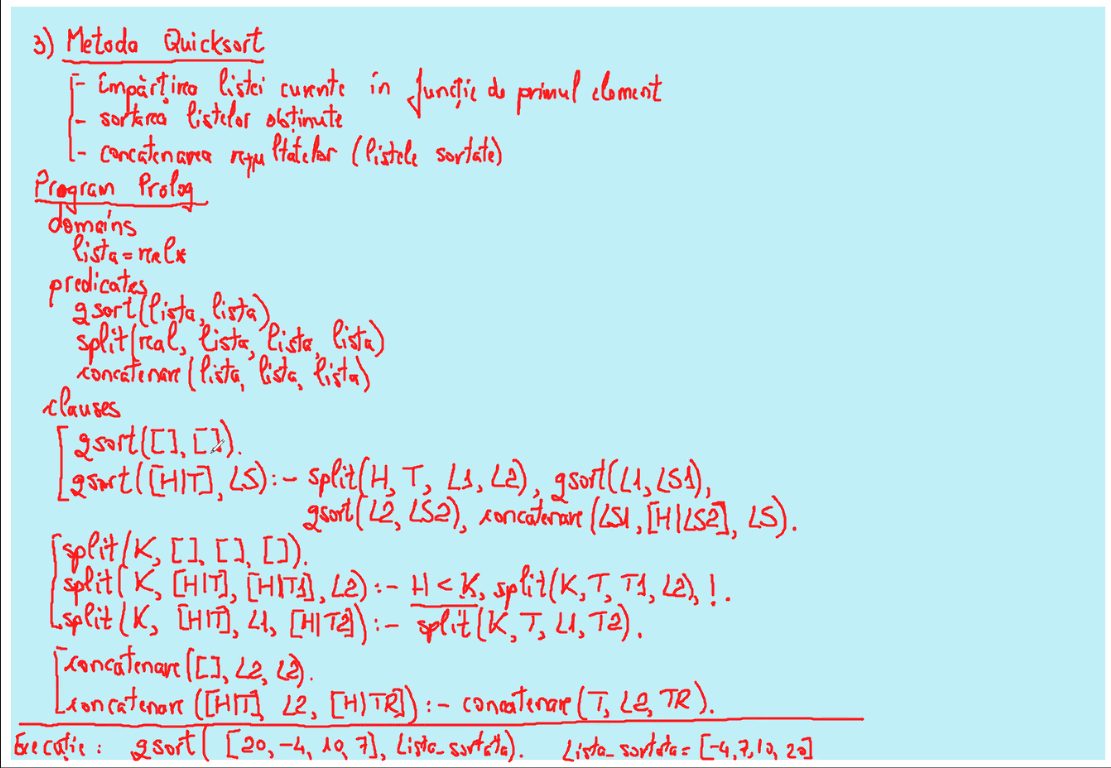 3) Metoda Quicksort
- împărțirea listei curente în funcție de primul element
- sortarea listelor obținute
- concatenarea rezultatelor (listele sortate)
Program Prolog
domains
lista=real*
predicates
qsort(lista, lista)
split(real, lista, lista, lista)
concatenare(lista, lista, lista)
clauses
qsort([], []).
qsort([H|T], LS):- split(H, T, L1, L2), qsort(L1, LS1),
qsort(L2, LS2), concatenare(LS1, [H|LS2], LS).
split(K, [], [], []).
split(K, [H|T], [H|T1], L2):- H < K, split(K, T, T1, L2), !.
split(K, [H|T], L1, [H|T2]):- split(K, T, L1, T2).
concatenare([], L2, L2).
concatenare([H|T], L2, [H|TR]):- concatenare(T, L2, TR).
Execuție: qsort([20, -4, 10, 7], Lista_sortata). Lista_sortata=[-4,7,10,20]